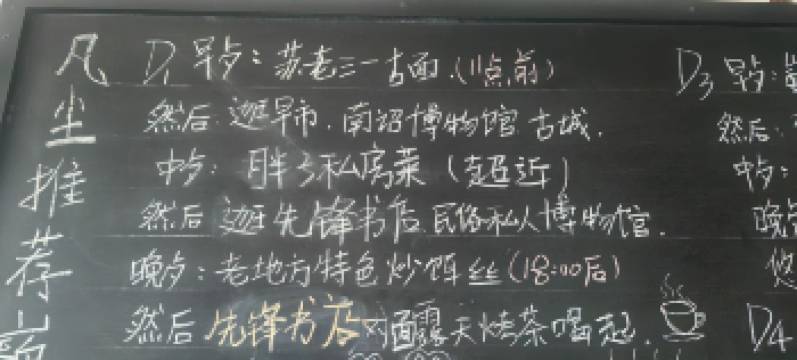 凡尘推荐
D1 早歺：苏老三一古面.(11点前)
然后 逛早市.南诏博物馆 古城.
中歺：胖子私房菜(超近)
然后 逛先锋书店 民俗私人博物馆.
晚歺：老地方特色炒饵丝(18:00后)
然后 先锋书店对面露天烤茶喝起.
D3 早歺：
然后.
中歺：
D4